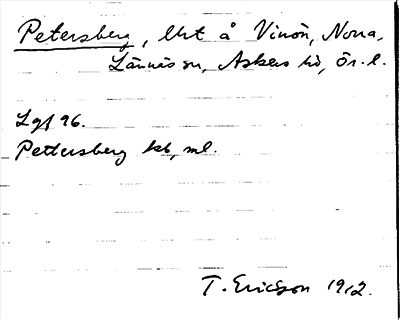 Petersberg, lht å Vinön, Norra,
Lännäs sn, Askers hd, Ör. l.
Lgf 96.
Pettersberg ksb, ml.
T. Ericson 1912.